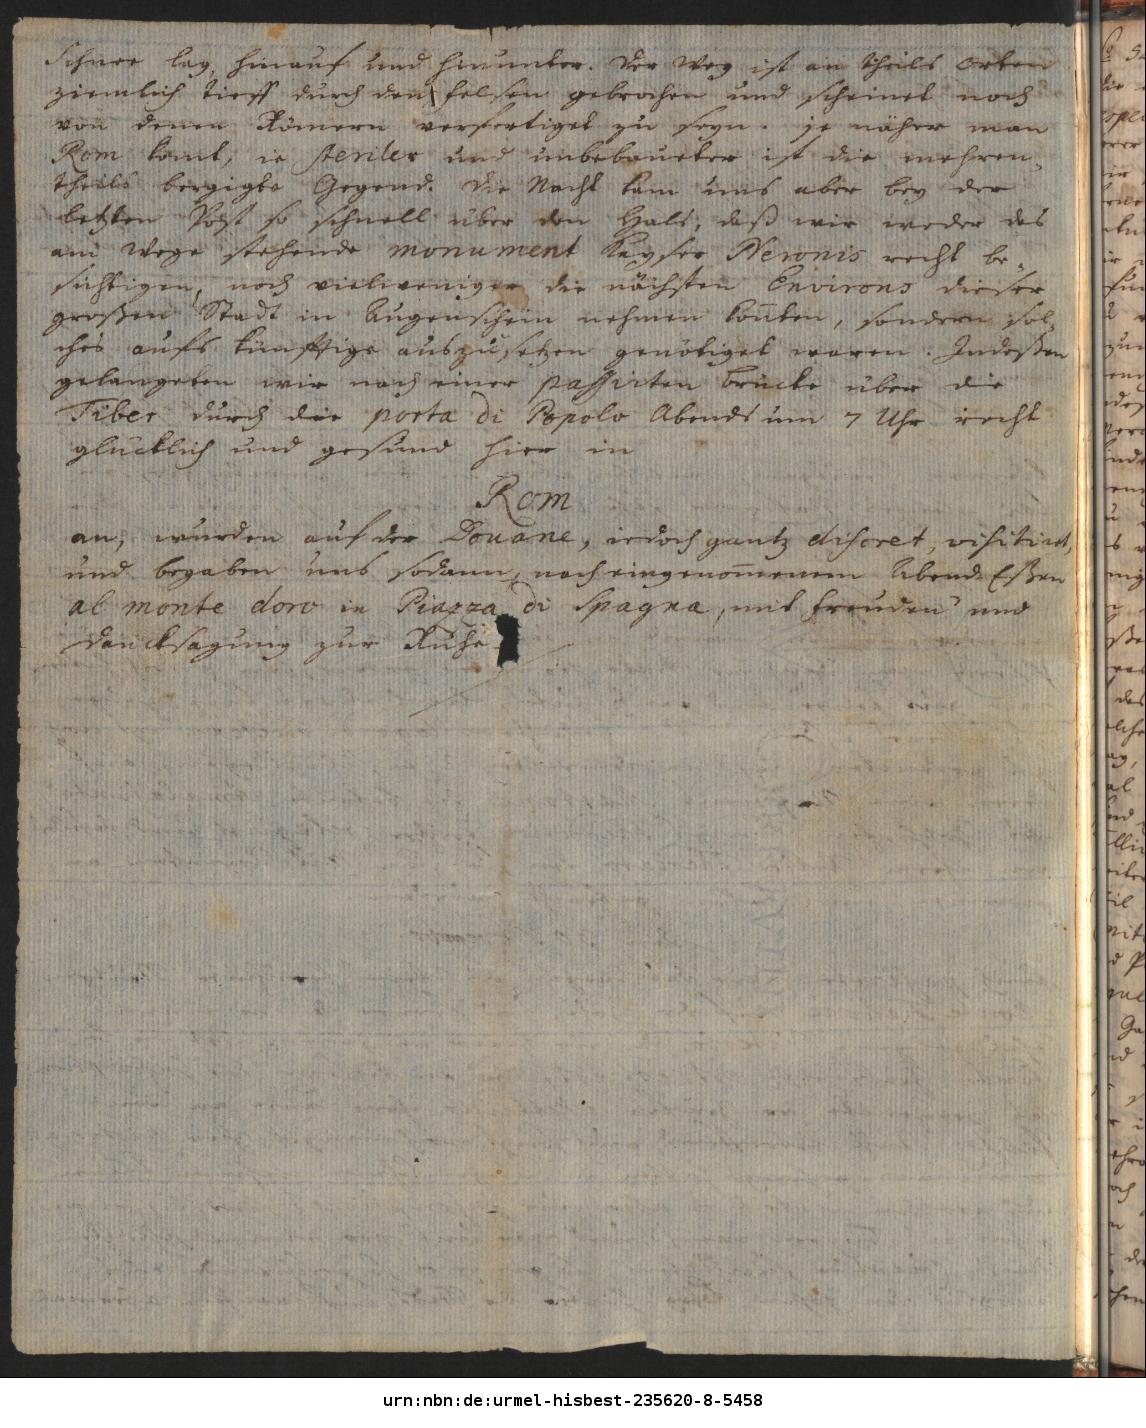 Schnee lag, hinauf und hinunter. Der Weg ist an theils Orten
ziemlich tieff durch den felsen gebrochen und scheinet noch
von denen Römern verfertiget zu seyn. je näher man
Rom komt, ie steriler und unbebaueter ist die mehren-
theils bergigte Gegend. Die Nacht kam uns aber bey der
letzten Post so schnell über den Hals, daß wir weder das
am Wege stehende monument Kayser Neronis recht be-
sichtigen, noch vielweniger die nächsten Environs dieser
großen Stadt in Augenschein nehmen kon̄ten, sondern sol-
ches aufs künfftige auszusetzen genötiget waren. Indeßen
gelangeten wir nach einer passirten brücke über die
Tiber durch die porta di Popolo Abends um 7 Uhr recht
glücklich und gesund hier in
Rom
an, wurden auf der Douane, iedoch gantz discret, visitirt,
und begaben uns sodann, nach eingenom̄enem Abend Eßen
al monte doro in Piazza di Spagna, mit freuden und
dancksagung zur Ruhe
urn:nbn:de:urmel-hisbest-235620-8-5458